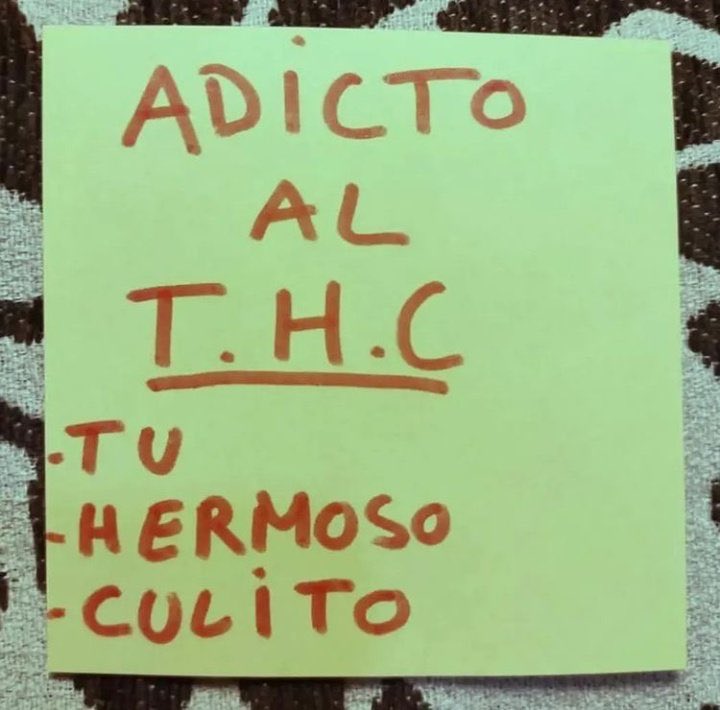 ADiCTO
AL
T.H.C
.TU
-HERMOSO
-CULiTO